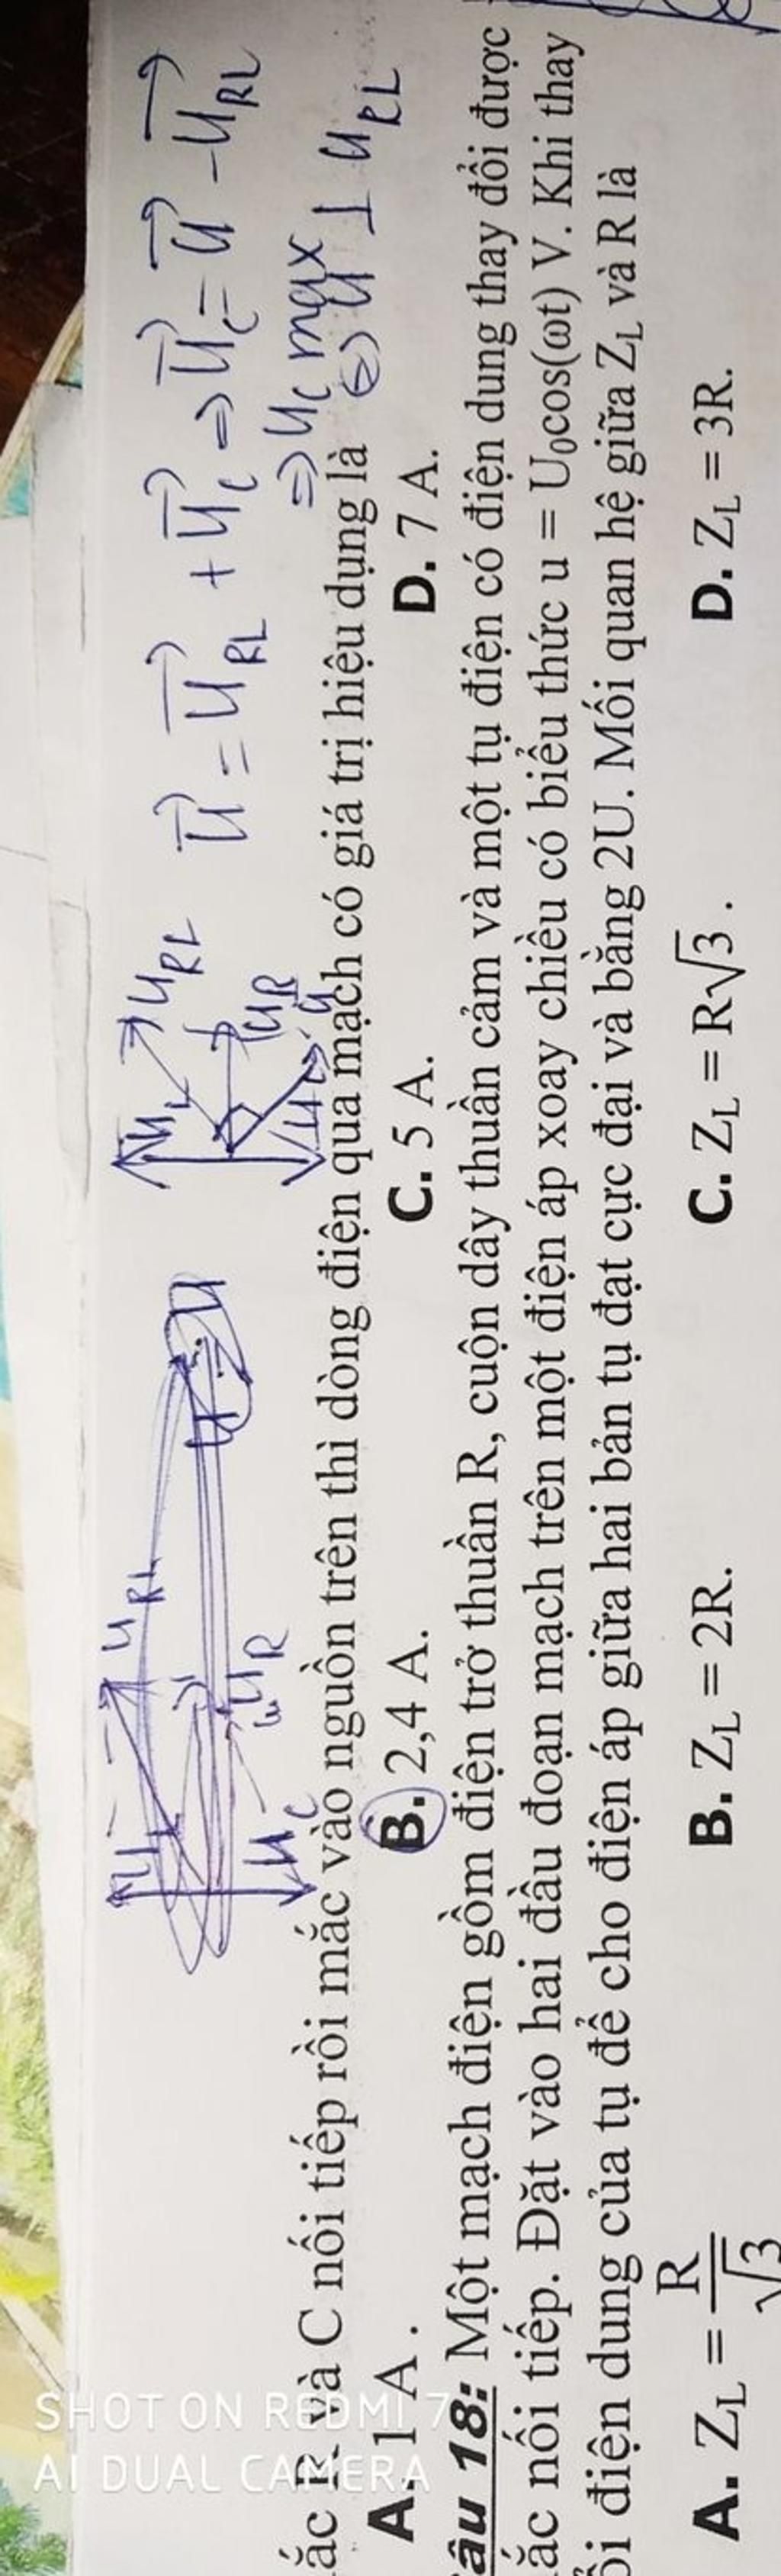 U_L U_RL
U_R
U_C
U_L U_RL
U_R
U_C U
U = U_RL + U_C ⇒ U_C = U - U_RL
⇒ U_C max
⇔ U ⊥ U_RL
ắc R và C nối tiếp rồi mắc vào nguồn trên thì dòng điện qua mạch có giá trị hiệu dụng là
A. 1 A. B. 2,4 A. C. 5 A. D. 7 A.
âu 18: Một mạch điện gồm điện trở thuần R, cuộn dây thuần cảm và một tụ điện có điện dung thay đổi được
ắc nối tiếp. Đặt vào hai đầu đoạn mạch trên một điện áp xoay chiều có biểu thức u = U₀cos(ωt) V. Khi thay
ổi điện dung của tụ để cho điện áp giữa hai bản tụ đạt cực đại và bằng 2U. Mối quan hệ giữa Z_L và R là
A. Z_L = R/√3 B. Z_L = 2R. C. Z_L = R√3 . D. Z_L = 3R.
SHOT ON REDMI 7
AI DUAL CAMERA